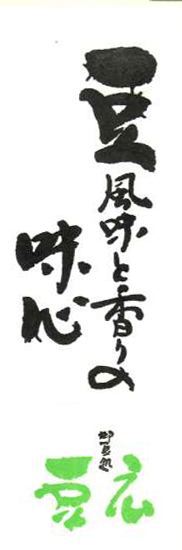 豆風味と香りの
味心
御豆処
豆広